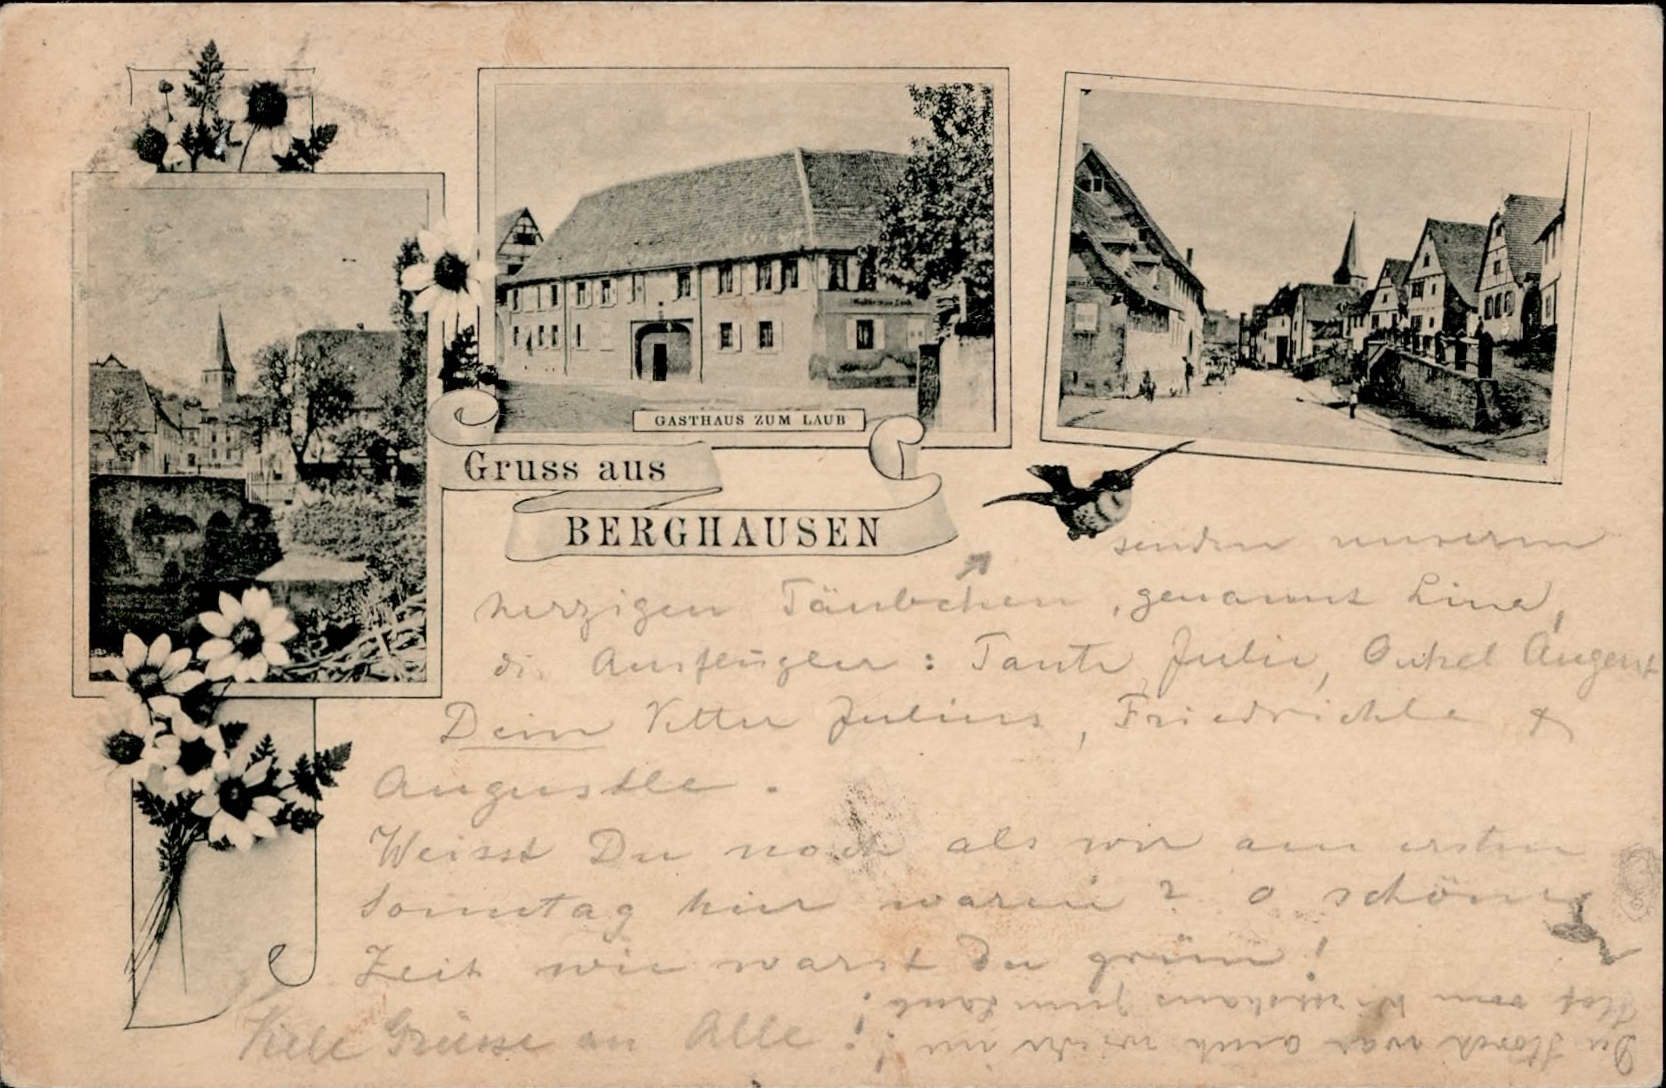 GASTHAUS ZUM LAUB
Gruss aus
BERGHAUSEN
senden unserem
herzigen Täubchen, genannt Lina,
die Ausflügler: Tante Julie, Onkel August
Dein Vetter Julius, Friedrichle &
Augustle.
Weisst Du noch als wir am ersten
Sonntag hier waren? O schöne
Zeit wie warst Du grün!
Viele Grüsse an Alle!
Der Storch war auch wieder im
Hof vom Wirtshaus zum Laub!